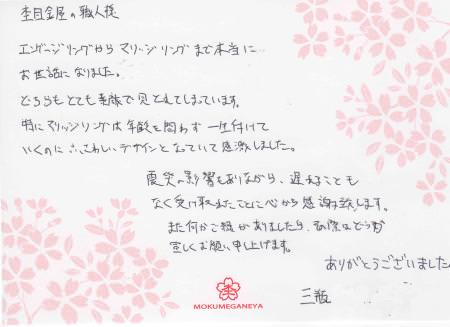 杢目金屋の職人様
エンゲージリングからマリッジリングまで本当に
お世話になりました。
どちらもとても素敵で見とれてしまっています。
特にマリッジリングは年齢を問わず一生付けて
いくのにふさわしいデザインとなっていて感激しました。
震災の影響もありながら、遅れることも
なく受け取れたことに心から感謝致します。
また何かご縁がありましたら、その際はどうぞ
宜しくお願い申し上げます。
ありがとうございました
三瓶
MOKUMEGANEYA